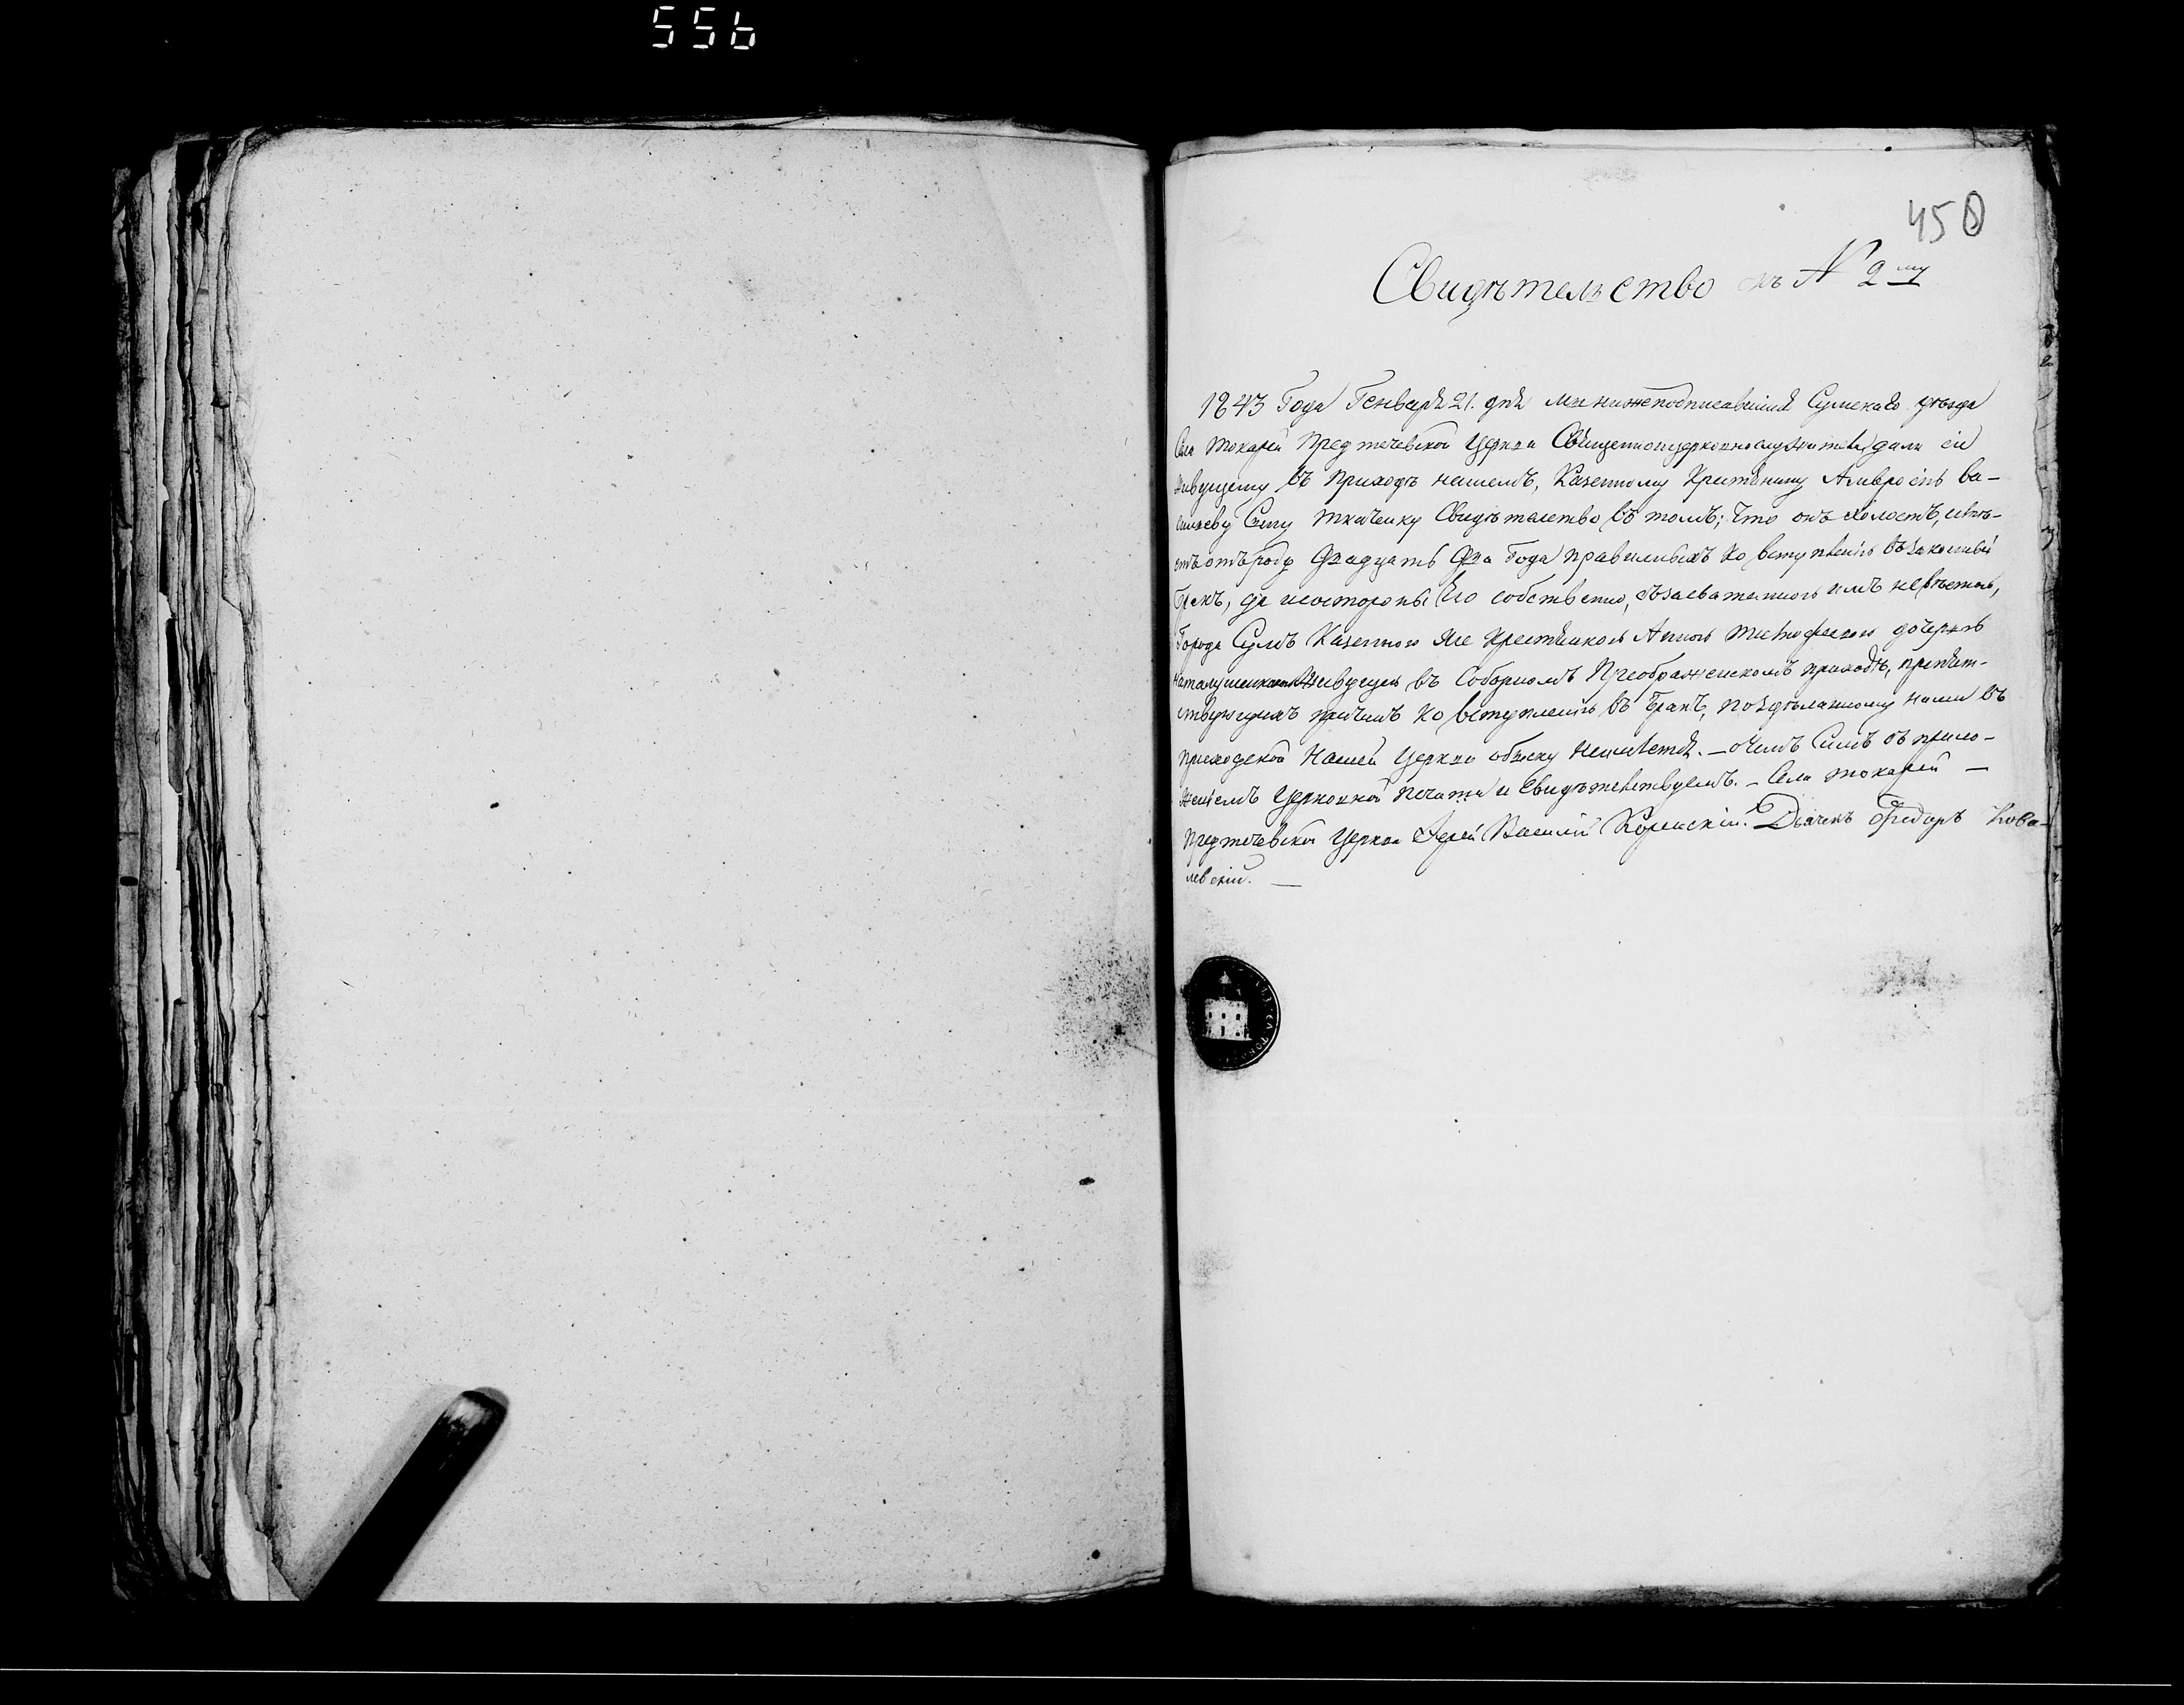 556
450
Свидѣтельство къ № 2му
1843 Года Генваря 21. дня мы нижеподписавшіися Сумскаго уѣзда
Села Токарей Предтечевской Церкви Священноцерковнослужители дали сіе
живущему въ приходѣ нашемъ, Казенному Крестянину Амвросію Ва-
силіеву Сыну Ткаченку Свидѣтелство въ томъ; что онъ холостъ, имѣ-
етъ отъ роду двадцать два Года правильныхъ ко вступленію възаконный
бракъ, да исостороны Его собственно, съзасватанною имъ невѣстою,
Города Сумъ Казенною же Крестянкою Анною дочерью
живущею въ Соборномъ Преображенскомъ приходѣ, препят-
ствующихъ причинъ ко вступленію въ бракъ, поздѣланному нами въ
приходской Нашей Церкви обыску неимѣется. — очемъ Симъ съ прило-
женіемъ Церковной печати и Свидѣтелствуемъ. — Села Токарей —
Предтечевской Церкви Іерей Василій Дьячекъ Федоръ Кова-
левскій. —